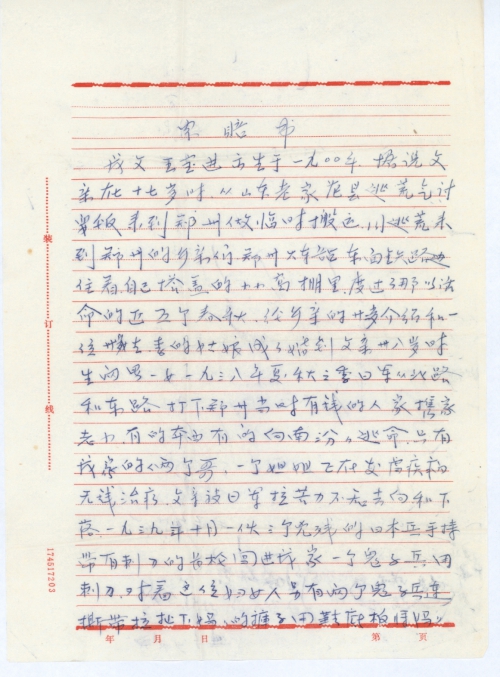 索赔书
我父王宝进出生于一九00年,据说父
亲在十七岁时,从山东老家范县逃荒乞讨
来到郑州做临时搬运,
到郑州的乡亲们郑州火车站东面铁路边
住着自己搭盖的小草棚里,度过了
命的 五个春秋,经乡亲的 介绍和一
位 姓李的姑娘成了婚到父亲卅八岁时
生两男一女一九三八年夏秋之季日军从北路
和东路打下郑州当时有钱的人家携家
老小,有的奔西有的向南 逃命,只有
我家的两个哥,一个姐姐正在 病
无钱治疗,父亲被日军拉苦力不知去向和下
落,一九三九年十月一伙三个 的日本兵手持
带有刺刀的长枪闯进我家一个鬼子兵,用
刺刀对着 妇女人另有两个鬼子兵连
撕带拉扯下妈妈的裤子用鞋底 妈妈
装
订
线
174517203
年 月 日 第 页